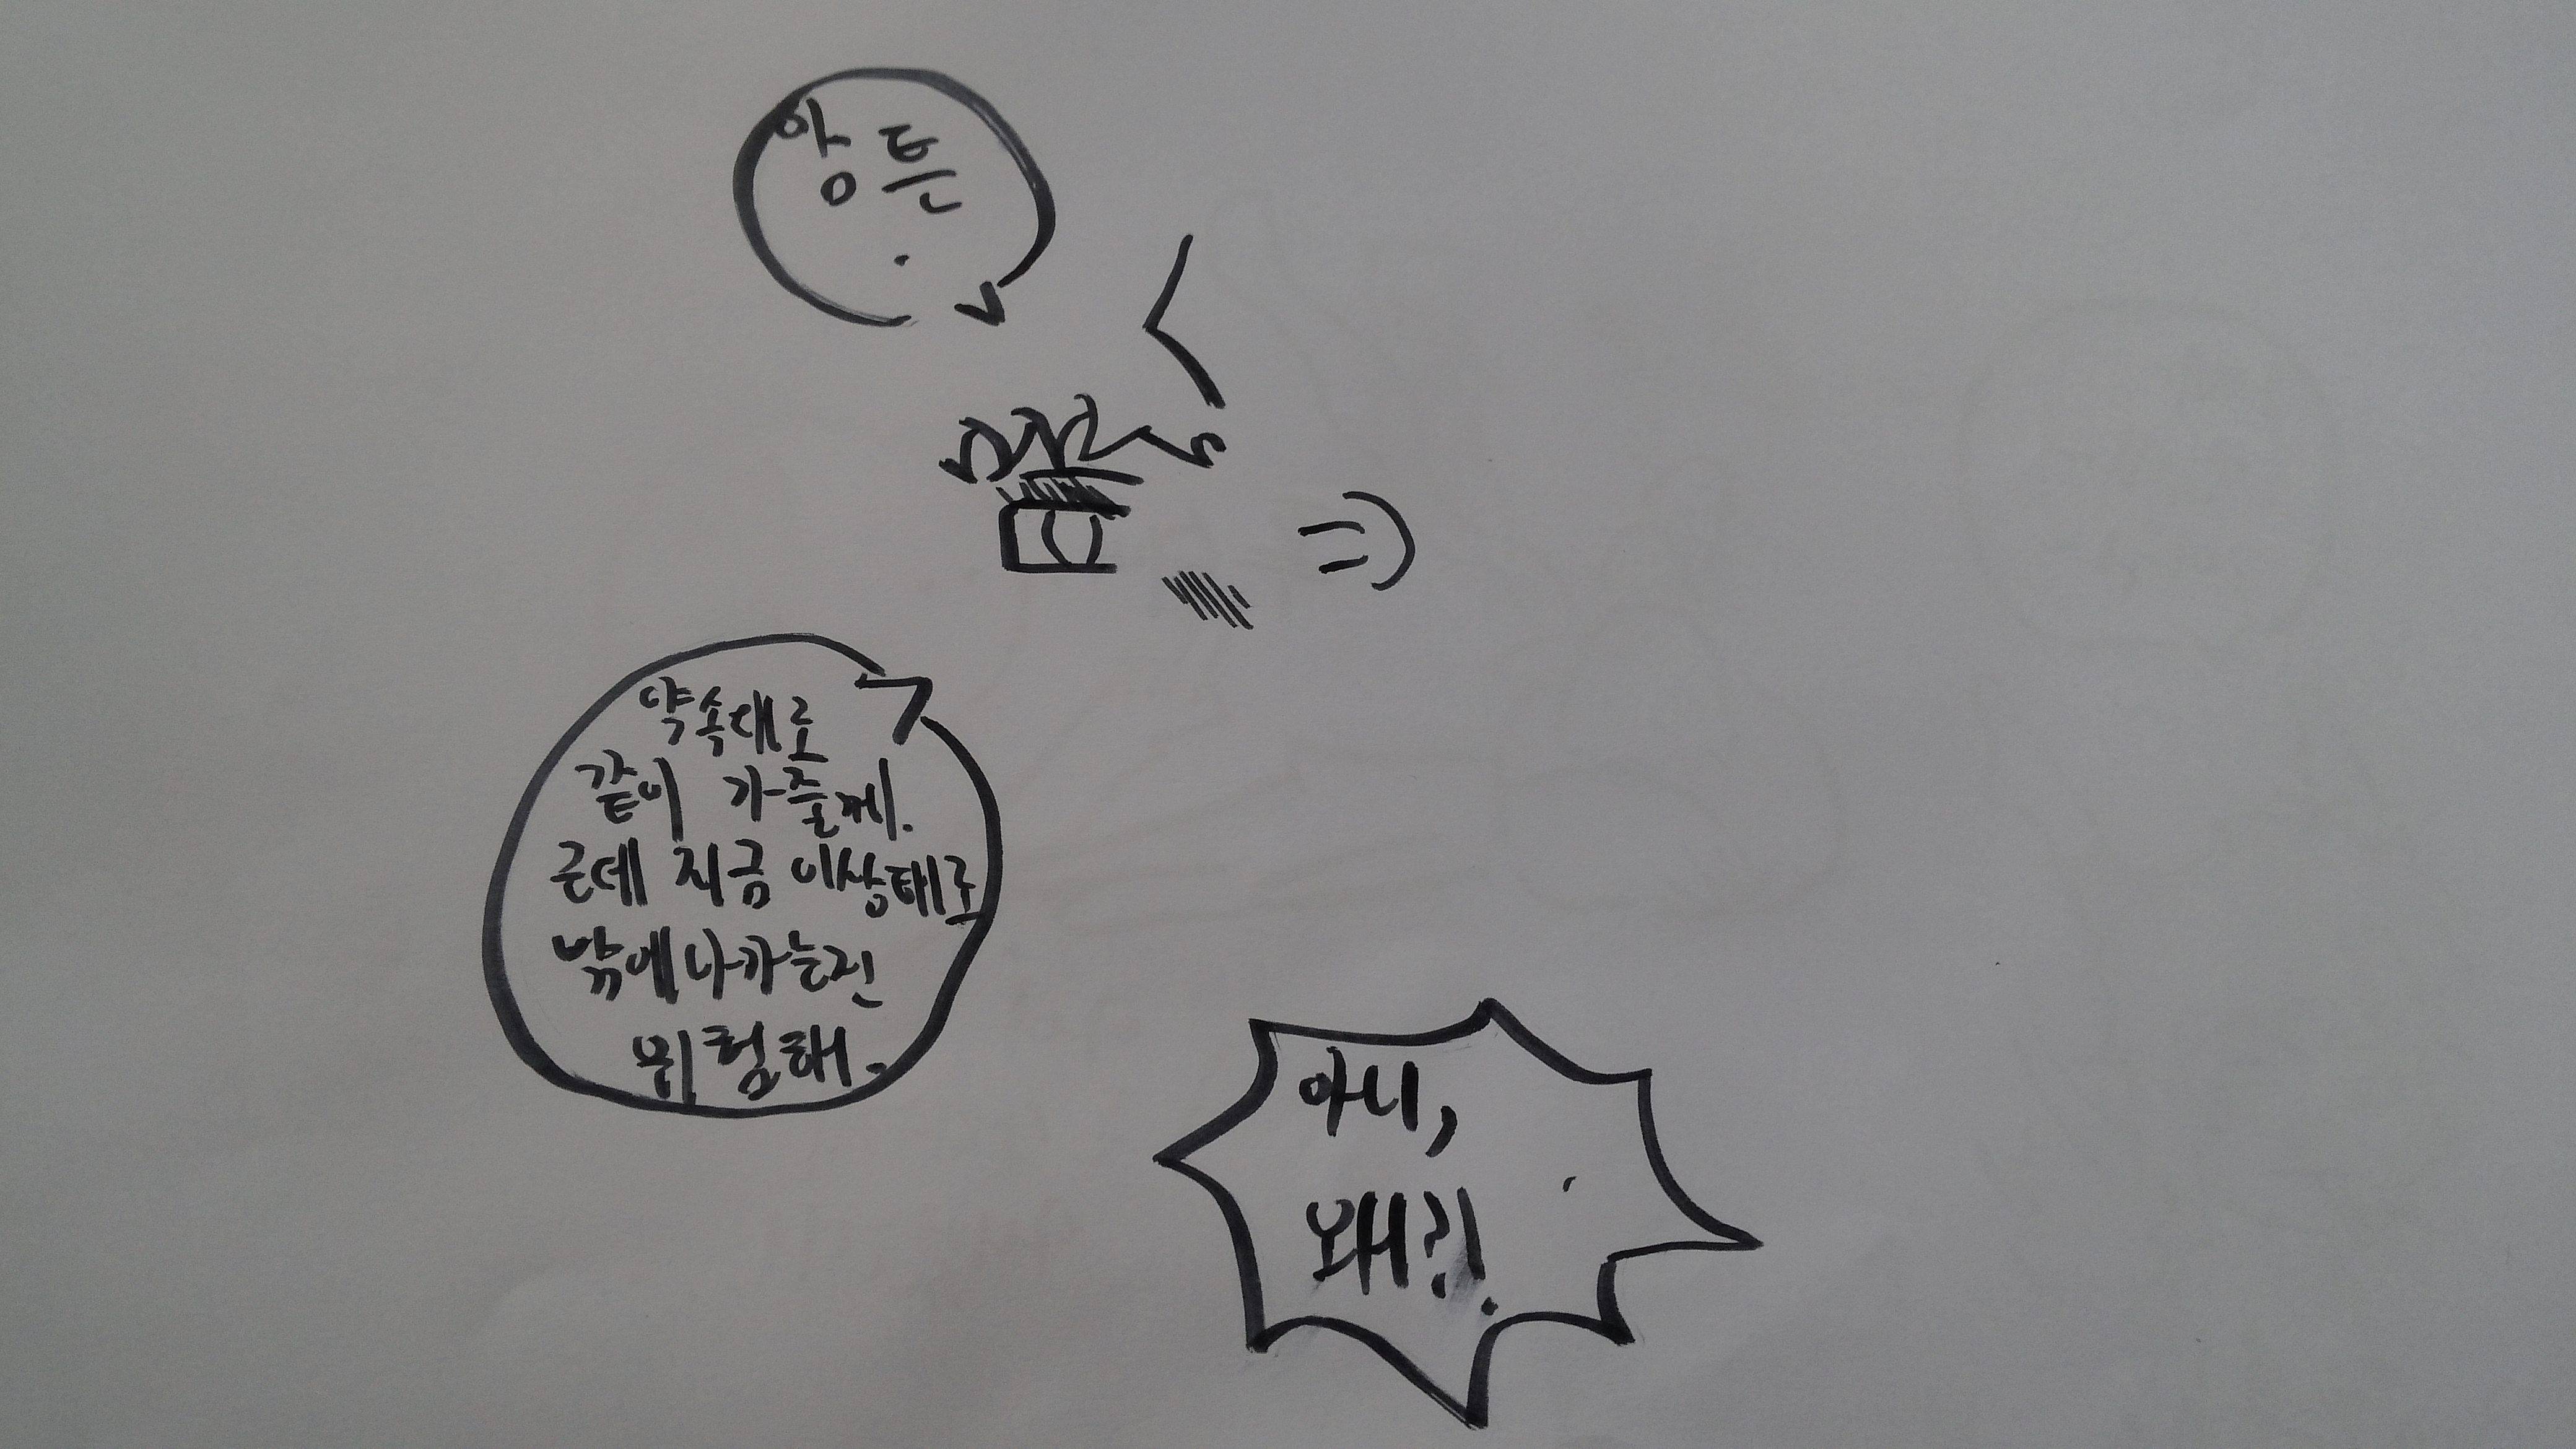 앙 튼
약속대로
같이 가줄게.
근데 지금 이상태로
밖에 나가는건
위험해.
아니,
왜?!